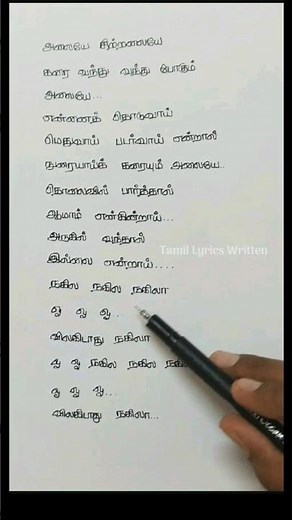 அலையே சிற்றலையே
கரை வந்து வந்து போகும்
அலையே...
என்னைத் தொடுவாய்
மெதுவாய் படர்வாய் என்றால்
நுரையாய்க் கரையும் அலையே..
தொலைவில் பார்த்தால்
ஆமாம் என்கின்றாய்...
அருகில் வந்தால்
இல்லை என்றாய்....
Tamil Lyrics Written
நகில நகில நகிலா
ஓ ஓ ஓ...
விலகிடாது நகிலா
ஓ ஓ நகில நகில
ஓ ஓ ஓ...
விலகிடாது நகிலா...